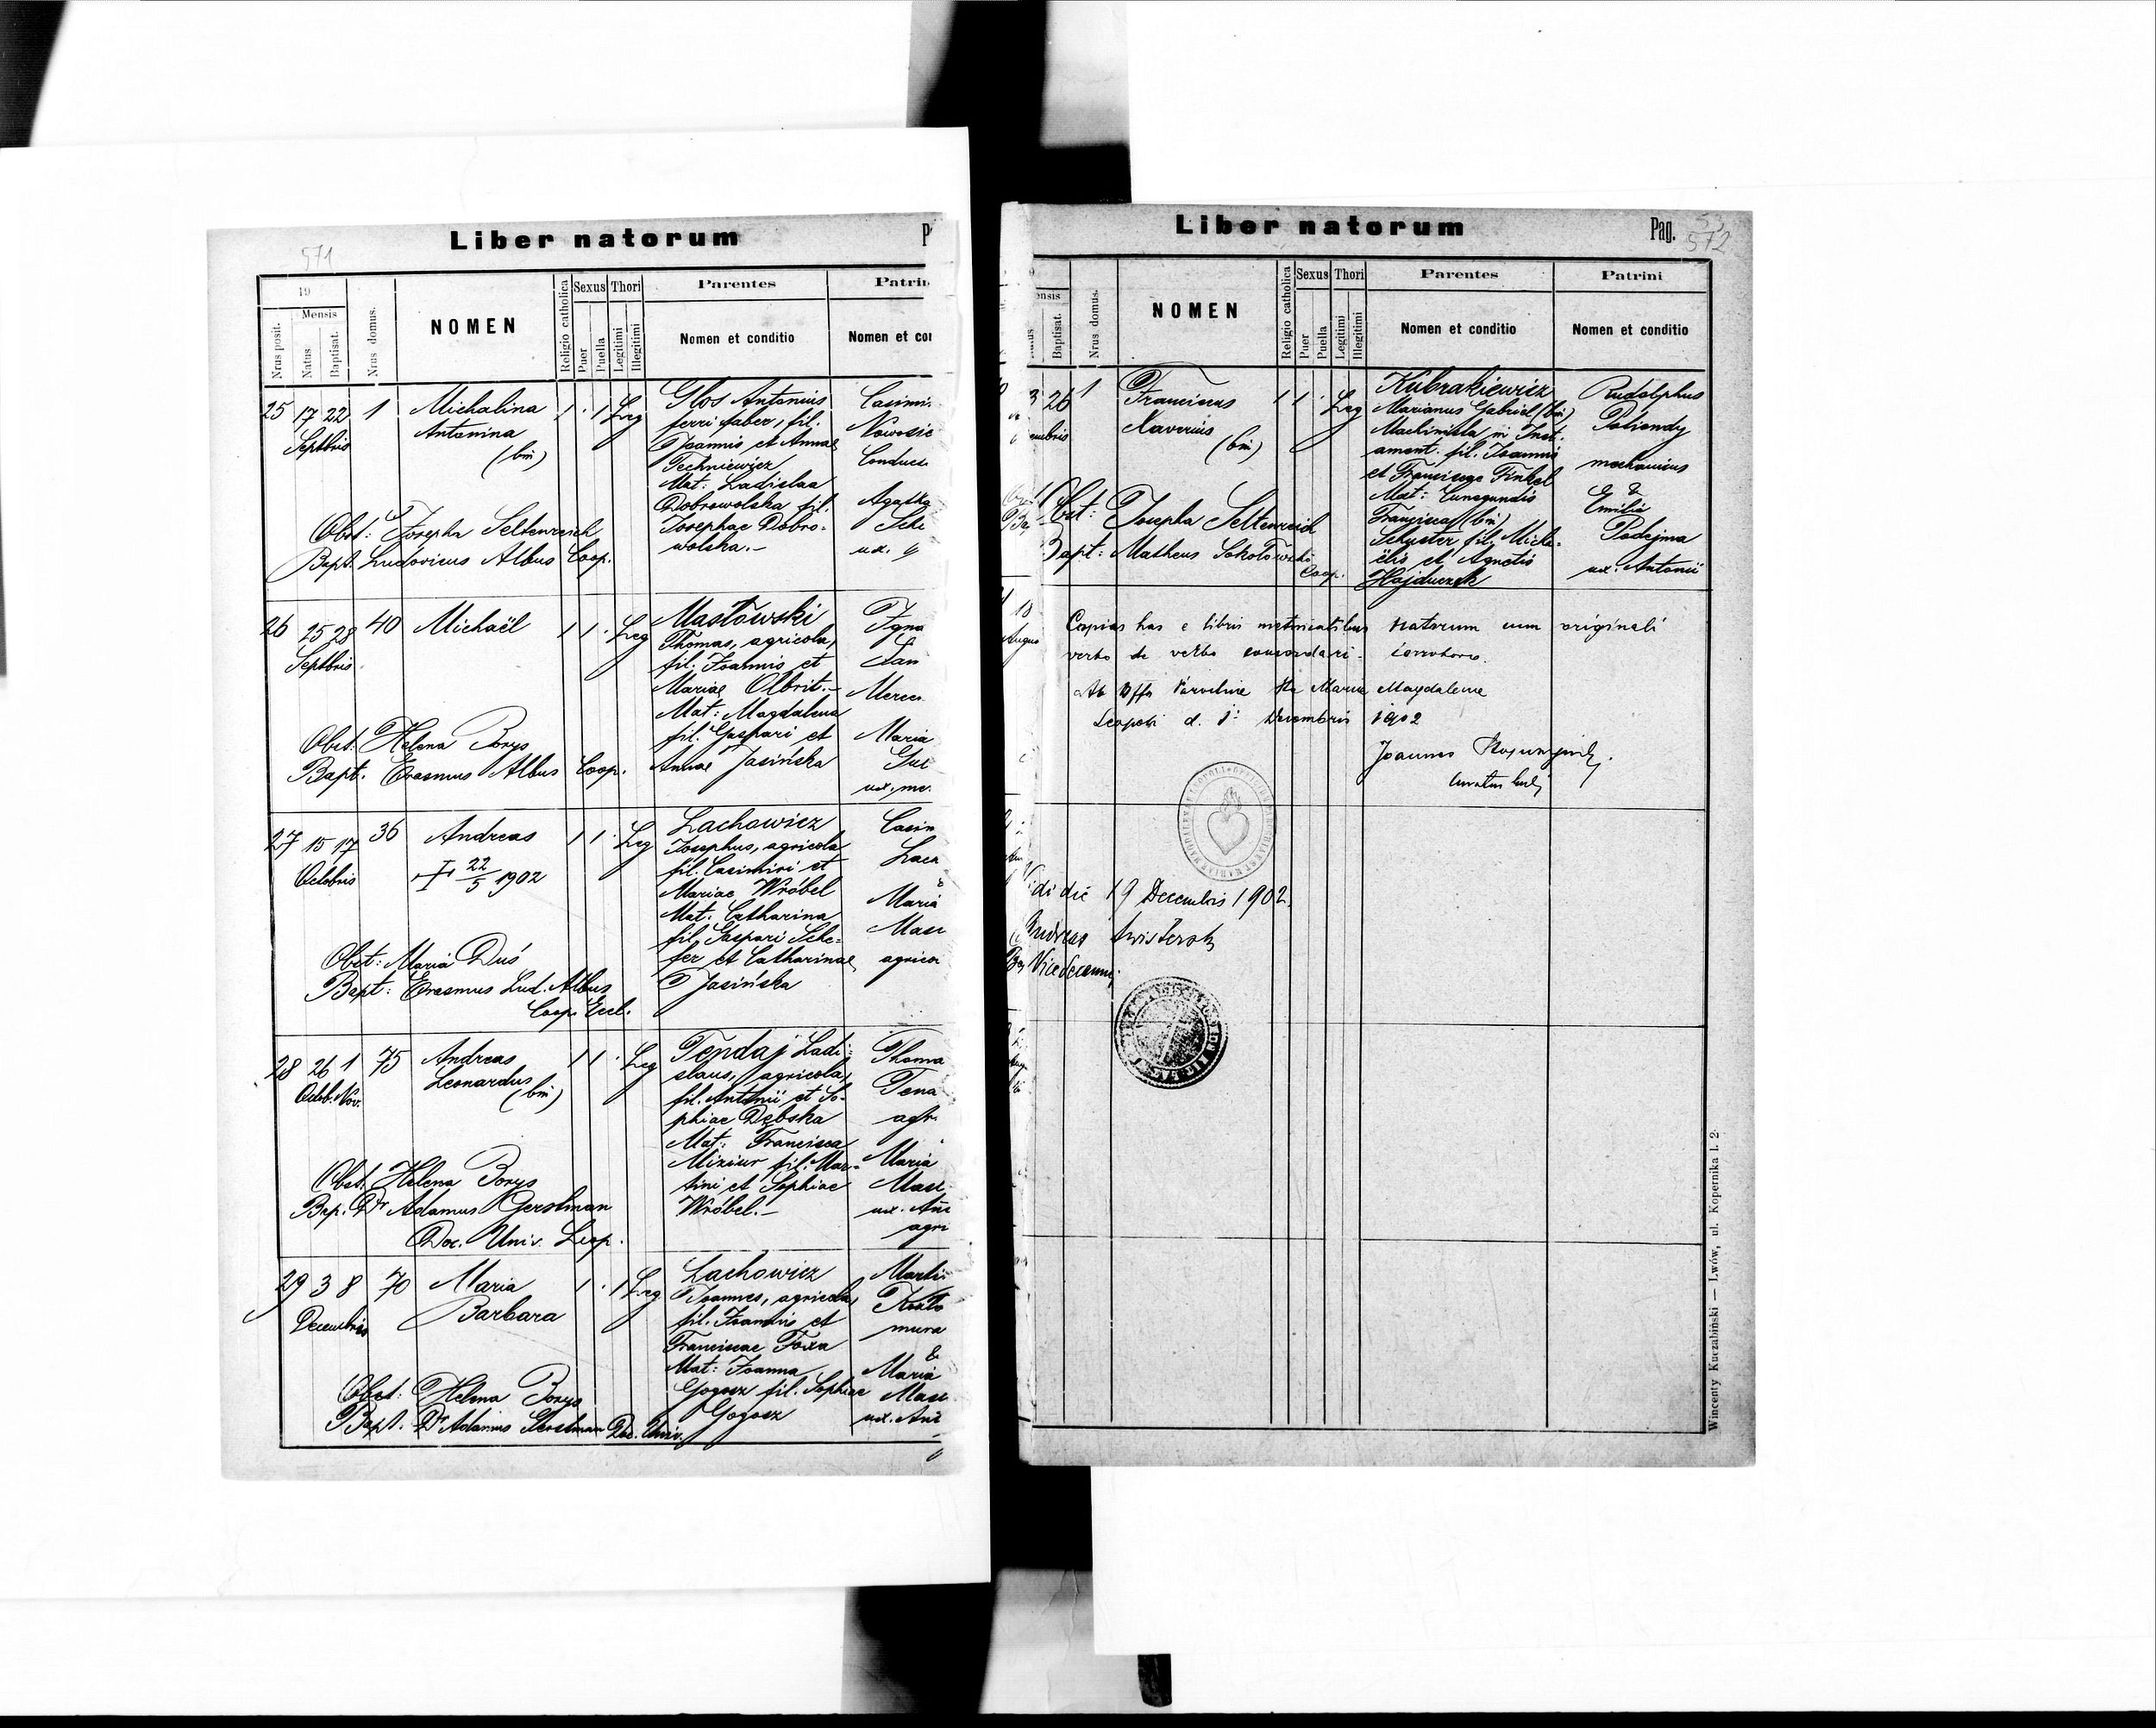 571
Liber natorum
P
19
Mensis
Nrus posit.
Natus
Baptisat.
Nrus domus.
NOMEN
Religio catholica
Sexus
Puer
Puella
Thori
Legitimi
Illegitimi
Parentes
Nomen et conditio
Patrin
Nomen et con
25 17 22 1 Michalina 1 . 1 Leg
Septbris
Antonina
(bin)
Obst: Josepha Seltenreich
Bapt. Ludovicus Albus Coop.
Glos Antonius
ferri faber, fil.
Joannis et Annae
Techniewicz
Mat: Ladislaa
Dobrowolska fil.
Josephae Dobro-
wolska.-
Casimi
Nowosie
Conduct
Agatha
Sche
ux.
26 25 28 40 Michaël 1 1 . Leg
Septbris
Obst. Helena Borys
Bapt. Erasmus Albus Coop.
Masłowski
Thomas, agricola,
fil. Joannis et
Mariae Olbrit.-
Mat: Magdalena
fil. Gaspari et
Annae Jasińska
Igna
Merca
Maria
ux. me
27 15 17 36 Andreas 1 1 . Leg
Octobris
+ 22/5 1902
Obst: Maria Duś
Bapt: Erasmus Lud. Albus
Coop. Eccl.
Lachowicz
Josephus, agricola
fil. Casimiri et
Mariae Wróbel
Mat. Catharina
fil. Gaspari Sche-
fer et Catharinae
Jasińska
Casim
Lach
&
Maria
Masi
agrico
28 26 1 75 Andreas 1 1 . Leg
Octob. Nov.
Leonardus
(bin)
Obst. Helena Borys
Bap. Dr Adamus Gerstman
Doc. Univ. Leop.
Tendaj Ladi-
slaus, agricola,
fil. Antonii et So-
phiae Dębska
Mat: Francisca
Miziur fil. Mar-
tini et Sophiae
Wróbel.-
Thoma
Tena
agr.
Maria
Masi
ux. Ant
agri
29 3 8 70 Maria 1 . 1 Leg
Decembris
Barbara
Obst: Helena Borys
Bapt. Dr Adamus Gerstman Doc. Univ.
Lachowicz
Joannes, agricola,
fil. Joannis et
Franciscae Foxa
Mat: Joanna
Gogosz fil. Sophiae
Gogosz
Marti
Kozło
mura
&
Maria
Masi
ux. Ant
Liber natorum
Pag. 53
572
ensis
Baptisat.
Nrus domus.
NOMEN
Religio catholica
Sexus
Puer
Puella
Thori
Legitimi
Illegitimi
Parentes
Nomen et conditio
Patrini
Nomen et conditio
3 26 1 Franciscus 1 1 . Leg
embris
Xaverius
(bin)
Obst: Josepha Seltenreich
Bapt: Matheus Sokołowski
Coop.
Kubrakiewicz
Marianus Gabriel (bin)
Machinista in Inst.
ament. fil. Joannis
et Franciscae Finkel
Mat: Cunegundis
Francisca (bin)
Schuster fil. Micha-
ëlis et Agnetis
Hajduczek
Rudolphus
Poliondy
mechanicus
&
Emilia
Podejma
ux. Antonii
Copias has e libris metricalibus natorum cum originali
verbo de verbo concordari corroboro.
Ab Offo Parochiae Stae Mariae Magdalenae
Leopoli d. 1: Decembris 1902
Joannes
Curatus Eccl.
Vidi die 19 Decembris 1902.
Andreas
Vicedecanus
Wincenty Kuczabiński — Lwów, ul. Kopernika l. 2.